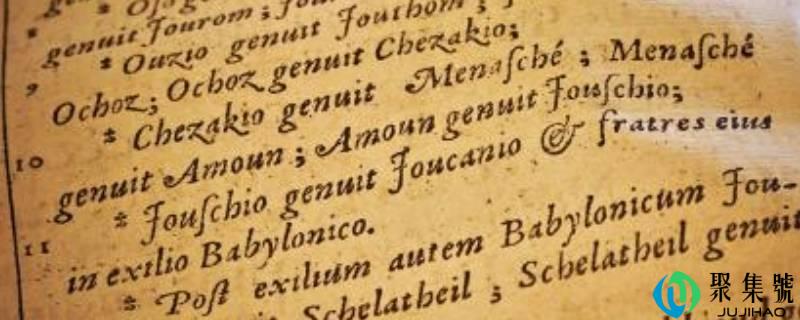 genuit Jourom; Jou
* Ouzio genuit Jouthom;
9 Ochoz; Ochoz genuit Chezakio;
* Chezakio genuit Menaſché; Menaſché
10 genuit Amoun; Amoun genuit Jouſchio;
* Jouſchio genuit Joucanio & fratres eius
11 in exilio Babylonico.
* Poſt exilium autem Babylonicum Jou-
Schelatheil; Schelatheil genuit
聚集號
JUJIHAO